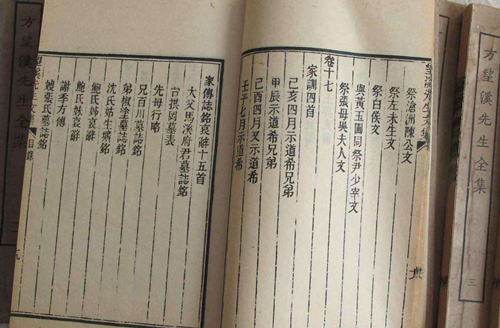 方望溪先生全集
三
望溪先生文集
祭滄洲陳公文
祭左未生文
祭白侯文
與黃玉圃同祭尹少宰文
祭張母吳夫人文
卷十七
家訓四首
己亥四月示道希兄弟
甲辰示道希兄弟
己酉四月又示道希
壬子七月示道希
家傳誌銘哀辭十五首
大父馬溪府君墓誌銘
台拱岡墓表
先母行略
兄百川墓誌銘
弟椒塗墓誌銘
沈氏姑生壙銘
鮑氏姊哀辭
鮑氏妹哀辭
謝季方傳
嫂張氏墓誌銘
目錄
方望溪先生全集